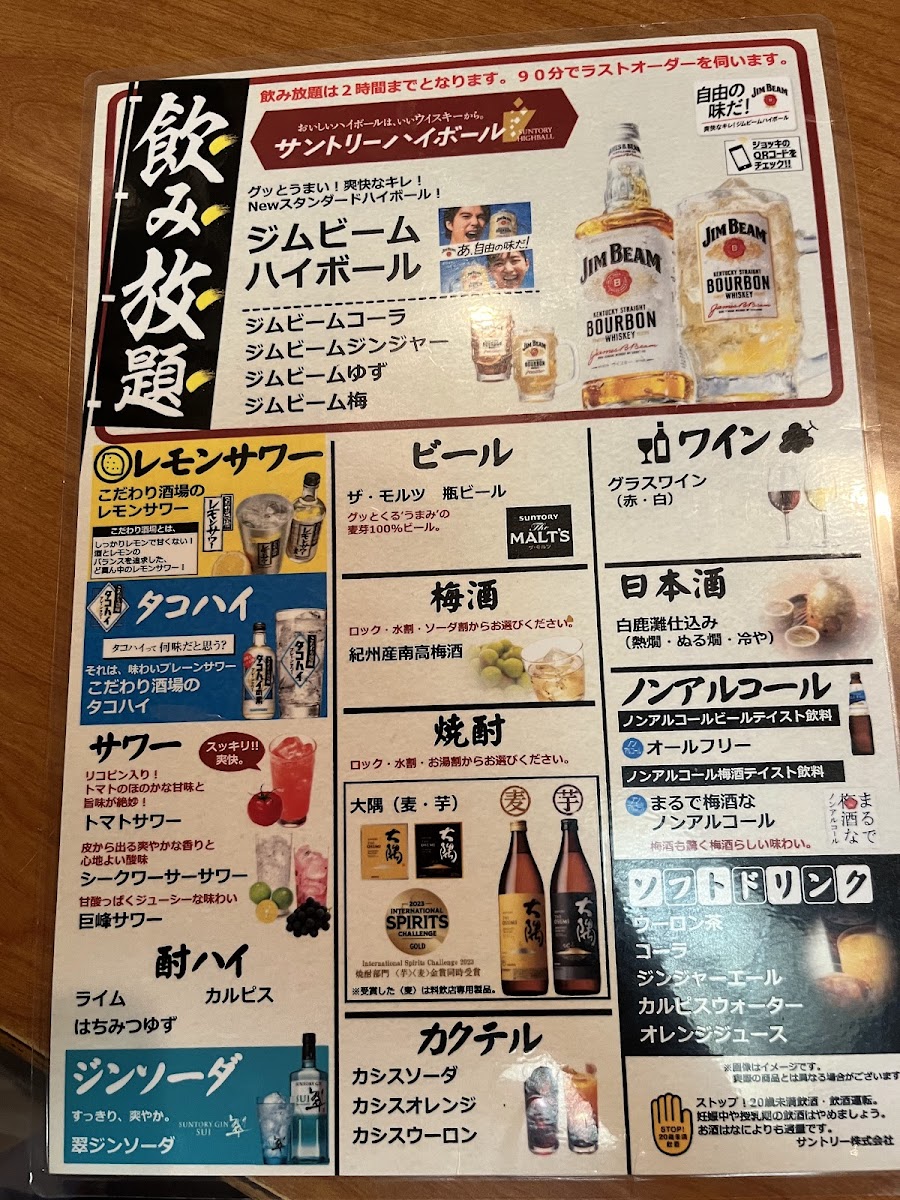 飲み放題
飲み放題は２時間までとなります。９０分でラストオーダーを伺います。
おいしいハイボールは、いいウイスキーから。
サントリーハイボール
SUNTORY
HIGHBALL
自由の
味だ!
JIM BEAM
爽快なキレ!ジムビームハイボール
ジョッキの
QRコードを
チェック!!
グッとうまい！爽快なキレ！
Newスタンダードハイボール！
ジムビーム
ハイボール
あ、自由の味だ!
ジムビームコーラ
ジムビームジンジャー
ジムビームゆず
ジムビーム梅
JIM BEAM
KENTUCKY STRAIGHT
BOURBON
WHISKEY
JIM BEAM
KENTUCKY STRAIGHT
BOURBON
WHISKEY
レモンサワー
こだわり酒場の
レモンサワー
こだわり酒場とは、
しっかりレモンで甘くない！
酒とレモンの
バランスを追求した、
ど真ん中のレモンサワー！
レモンサワー
タコハイ
タコハイ
タコハイって 何味だと思う?
それは、味わいプレーンサワー
こだわり酒場の
タコハイ
サワー
スッキリ!!
爽快。
リコピン入り！
トマトのほのかな甘味と
旨味が絶妙！
トマトサワー
皮から出る爽やかな香りと
心地よい酸味
シークワーサーサワー
甘酸っぱくジューシーな味わい
巨峰サワー
酎ハイ
ライム　カルピス
はちみつゆず
ジンソーダ
すっきり、爽やか。
翠ジンソーダ
SUNTORY GIN
SUI
翠
ビール
ザ・モルツ　瓶ビール
グッとくる‘うまみ’の
麦芽100%ビール。
SUNTORY
The
MALT'S
ザ・モルツ
梅酒
ロック・水割・ソーダ割からお選びください。
紀州産南高梅酒
焼酎
ロック・水割・お湯割からお選びください。
大隅（麦・芋）
麦
芋
大隅
大隅
大隅
大隅
2023
INTERNATIONAL
SPIRITS
CHALLENGE
GOLD
International Spirits Challenge 2023
焼酎部門〈芋〉〈麦〉金賞同時受賞
※受賞した〈麦〉は料飲店専用製品。
カクテル
カシスソーダ
カシスオレンジ
カシスウーロン
ワイン
グラスワイン
（赤・白）
日本酒
白鹿灘仕込み
（熱燗・ぬる燗・冷や）
ノンアルコール
ノンアルコールビールテイスト飲料
オールフリー
ノンアルコール梅酒テイスト飲料
まるで梅酒な
ノンアルコール
梅酒も驚く梅酒らしい味わい。
まるで
梅酒な
ノンアルコール
ソフトドリンク
ウーロン茶
コーラ
ジンジャーエール
カルピスウォーター
オレンジジュース
※画像はイメージです。
実際の商品とは異なる場合がございます
STOP!
20歳未満
飲酒
ストップ！20歳未満飲酒・飲酒運転。
妊娠中や授乳期の飲酒はやめましょう。
お酒はなによりも適量です。
サントリー株式会社